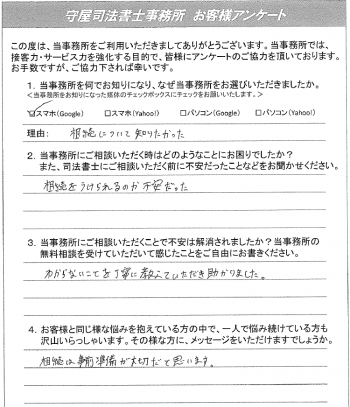 守屋司法書士事務所 お客様アンケート
この度は、当事務所をご利用いただきましてありがとうございます。当事務所では、
接客力・サービス力を強化する目的で、皆様にアンケートのご協力を頂いております。
お手数ですが、ご協力下されば幸いです。
1. 当事務所を何でお知りになり、なぜ当事務所をお選びいただきましたか。
<当事務所をお知りになった媒体のチェックボックスにチェックをお願いいたします。>
☑スマホ(Google) □スマホ(Yahoo!) □パソコン(Google) □パソコン(Yahoo!)
理由: 相続について知りたかった
2. 当事務所にご相談いただく時はどのようなことにお困りでしたか?
また、司法書士にご相談いただく前に不安だったことなどをお聞かせください。
相続をうけられるのか不安だった
3. 当事務所にご相談いただくことで不安は解消されましたか?当事務所の
無料相談を受けていただいて感じたことをご自由にお書きください。
わからないことを丁寧に教えていただき助かりました。
4. お客様と同じ様な悩みを抱えている方の中で、一人で悩み続けている方も
沢山いらっしゃいます。その様な方に、メッセージをいただけますでしょうか。
相続は事前準備が大切だと思います。